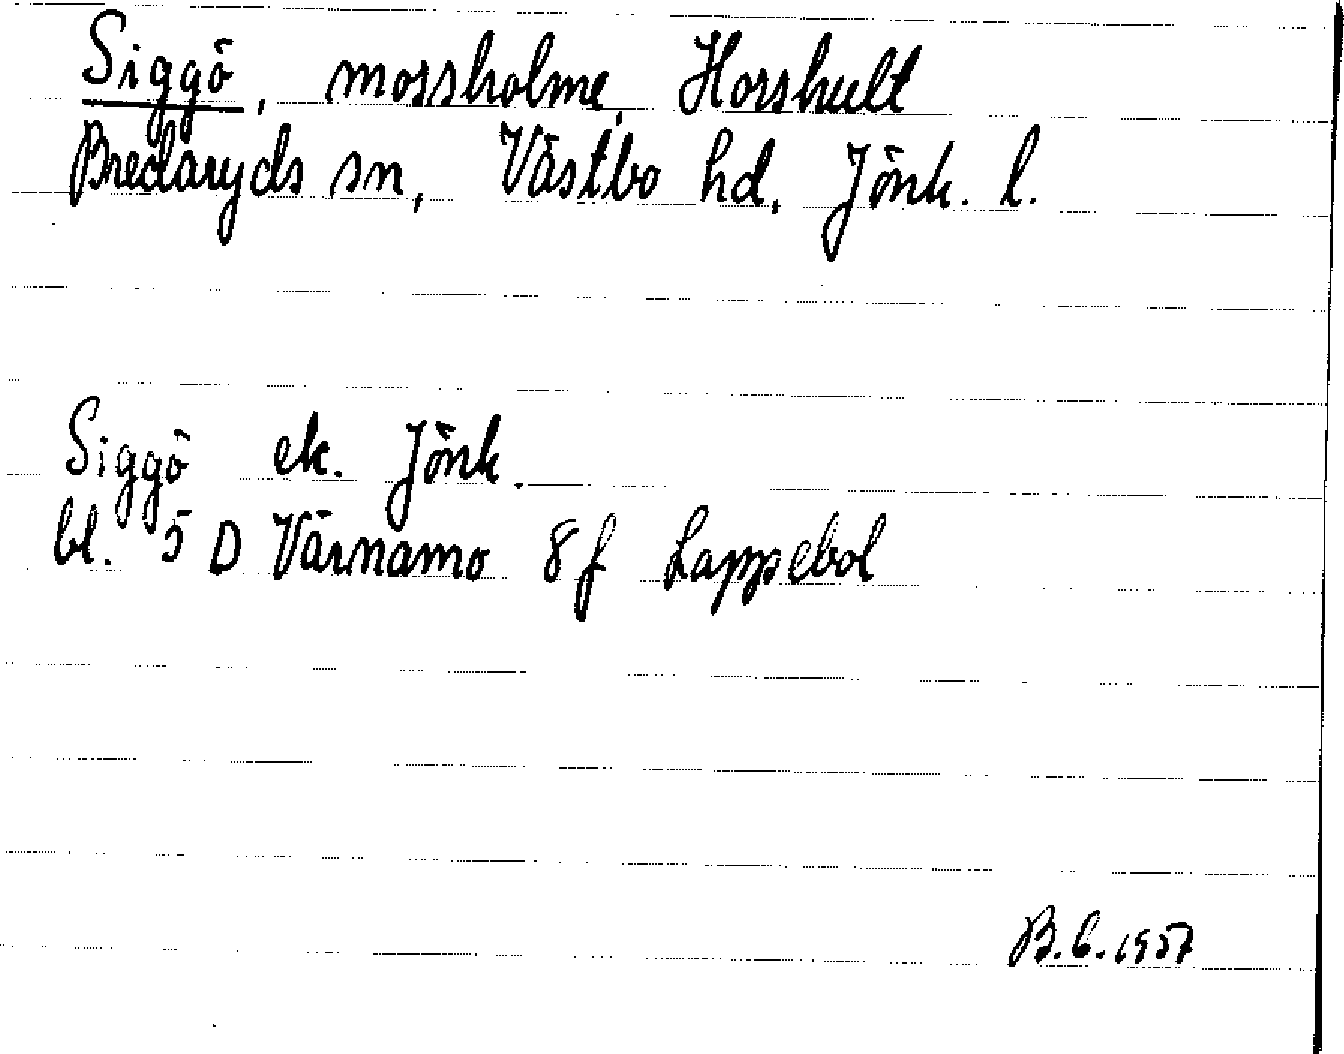 Siggö, mossholme, Horshult
Bredaryds sn, Västbo hd, Jönk. l.
Siggö ek. Jönk.
bl. 5 D Värnamo 8 f Lappebol
B.G. 1957